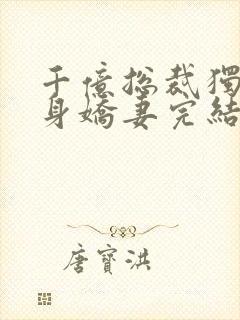 千億总裁獨
身嬌妻完結
唐寶洪